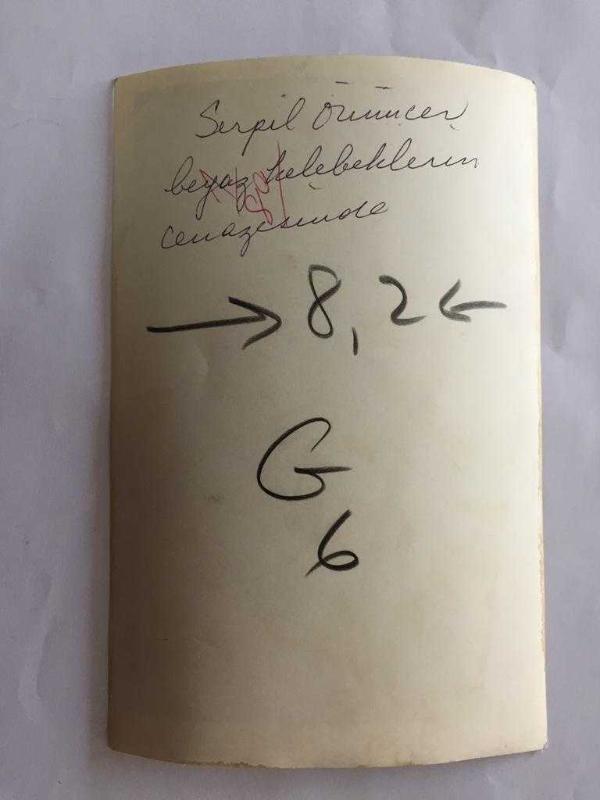 Serpil Örümcer
beyaz kelebeklerin
cenazesinde
→ 8,2 ←
G
6